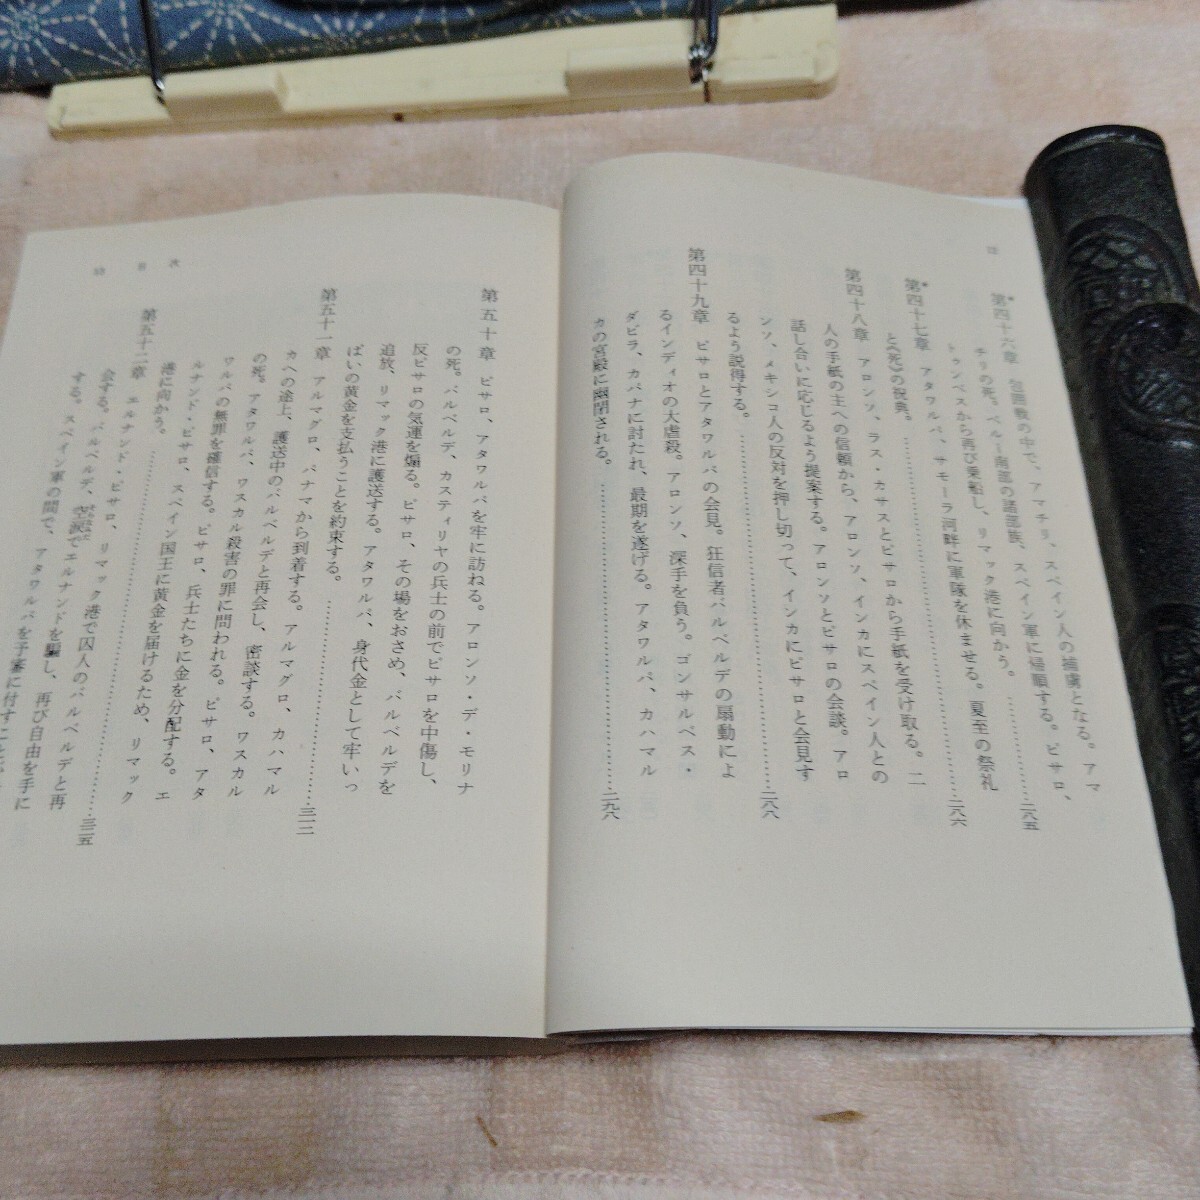 第四十六章 包囲戦の中で、アマチリ、スペイン人の捕虜となる。アマ
チリの死。ペルー南部の諸部族、スペイン軍に帰順する。ピサロ、
トゥンベスから再び乗船し、リマック港に向かう。……二八五
第四十七章 アタワルパ、サモーラ河畔に軍隊を休ませる。夏至の祭礼
と《死》の祝典。……二八六
第四十八章 アロンソ、ラス・カサスとピサロから手紙を受け取る。二
人の手紙の主への信頼から、アロンソ、インカにスペイン人との
話し合いに応じるよう提案する。アロンソとピサロの会談。アロ
ンソ、メキシコ人の反対を押し切って、インカにピサロと会見す
るよう説得する。……二八八
第四十九章 ピサロとアタワルパの会見。狂信者バルベルデの扇動によ
るインディオの大虐殺。アロンソ、深手を負う。ゴンサルベス・
ダビラ、カパナに討たれ、最期を遂げる。アタワルパ、カハマル
カの宮殿に幽閉される。……二九六
目次
第五十章 ピサロ、アタワルパを牢に訪ねる。アロンソ・デ・モリナ
の死。バルベルデ、カスティリヤの兵士の前でピサロを中傷し、
反ピサロの気運を煽る。ピサロ、その場をおさめ、バルベルデを
追放、リマック港に護送する。アタワルパ、身代金として牢いっ
ぱいの黄金を支払うことを約束する。……三一二
第五十一章 アルマグロ、パナマから到着する。アルマグロ、カハマル
カへの途上、護送中のバルベルデと再会し、密談する。ワスカル
の死。アタワルパ、ワスカル殺害の罪に問われる。ピサロ、アタ
ワルパの無罪を確信する。ピサロ、兵士たちに金を分配する。エ
ルナンド・ピサロ、スペイン国王に黄金を届けるため、リマック
港に向かう。……三二五
第五十二章 エルナンド・ピサロ、リマック港で囚人のバルベルデと再
会する。バルベルデ、空涙でエルナンドを騙し、再び自由を手に
する。スペイン軍の間で、アタワルパを予審に付すこと